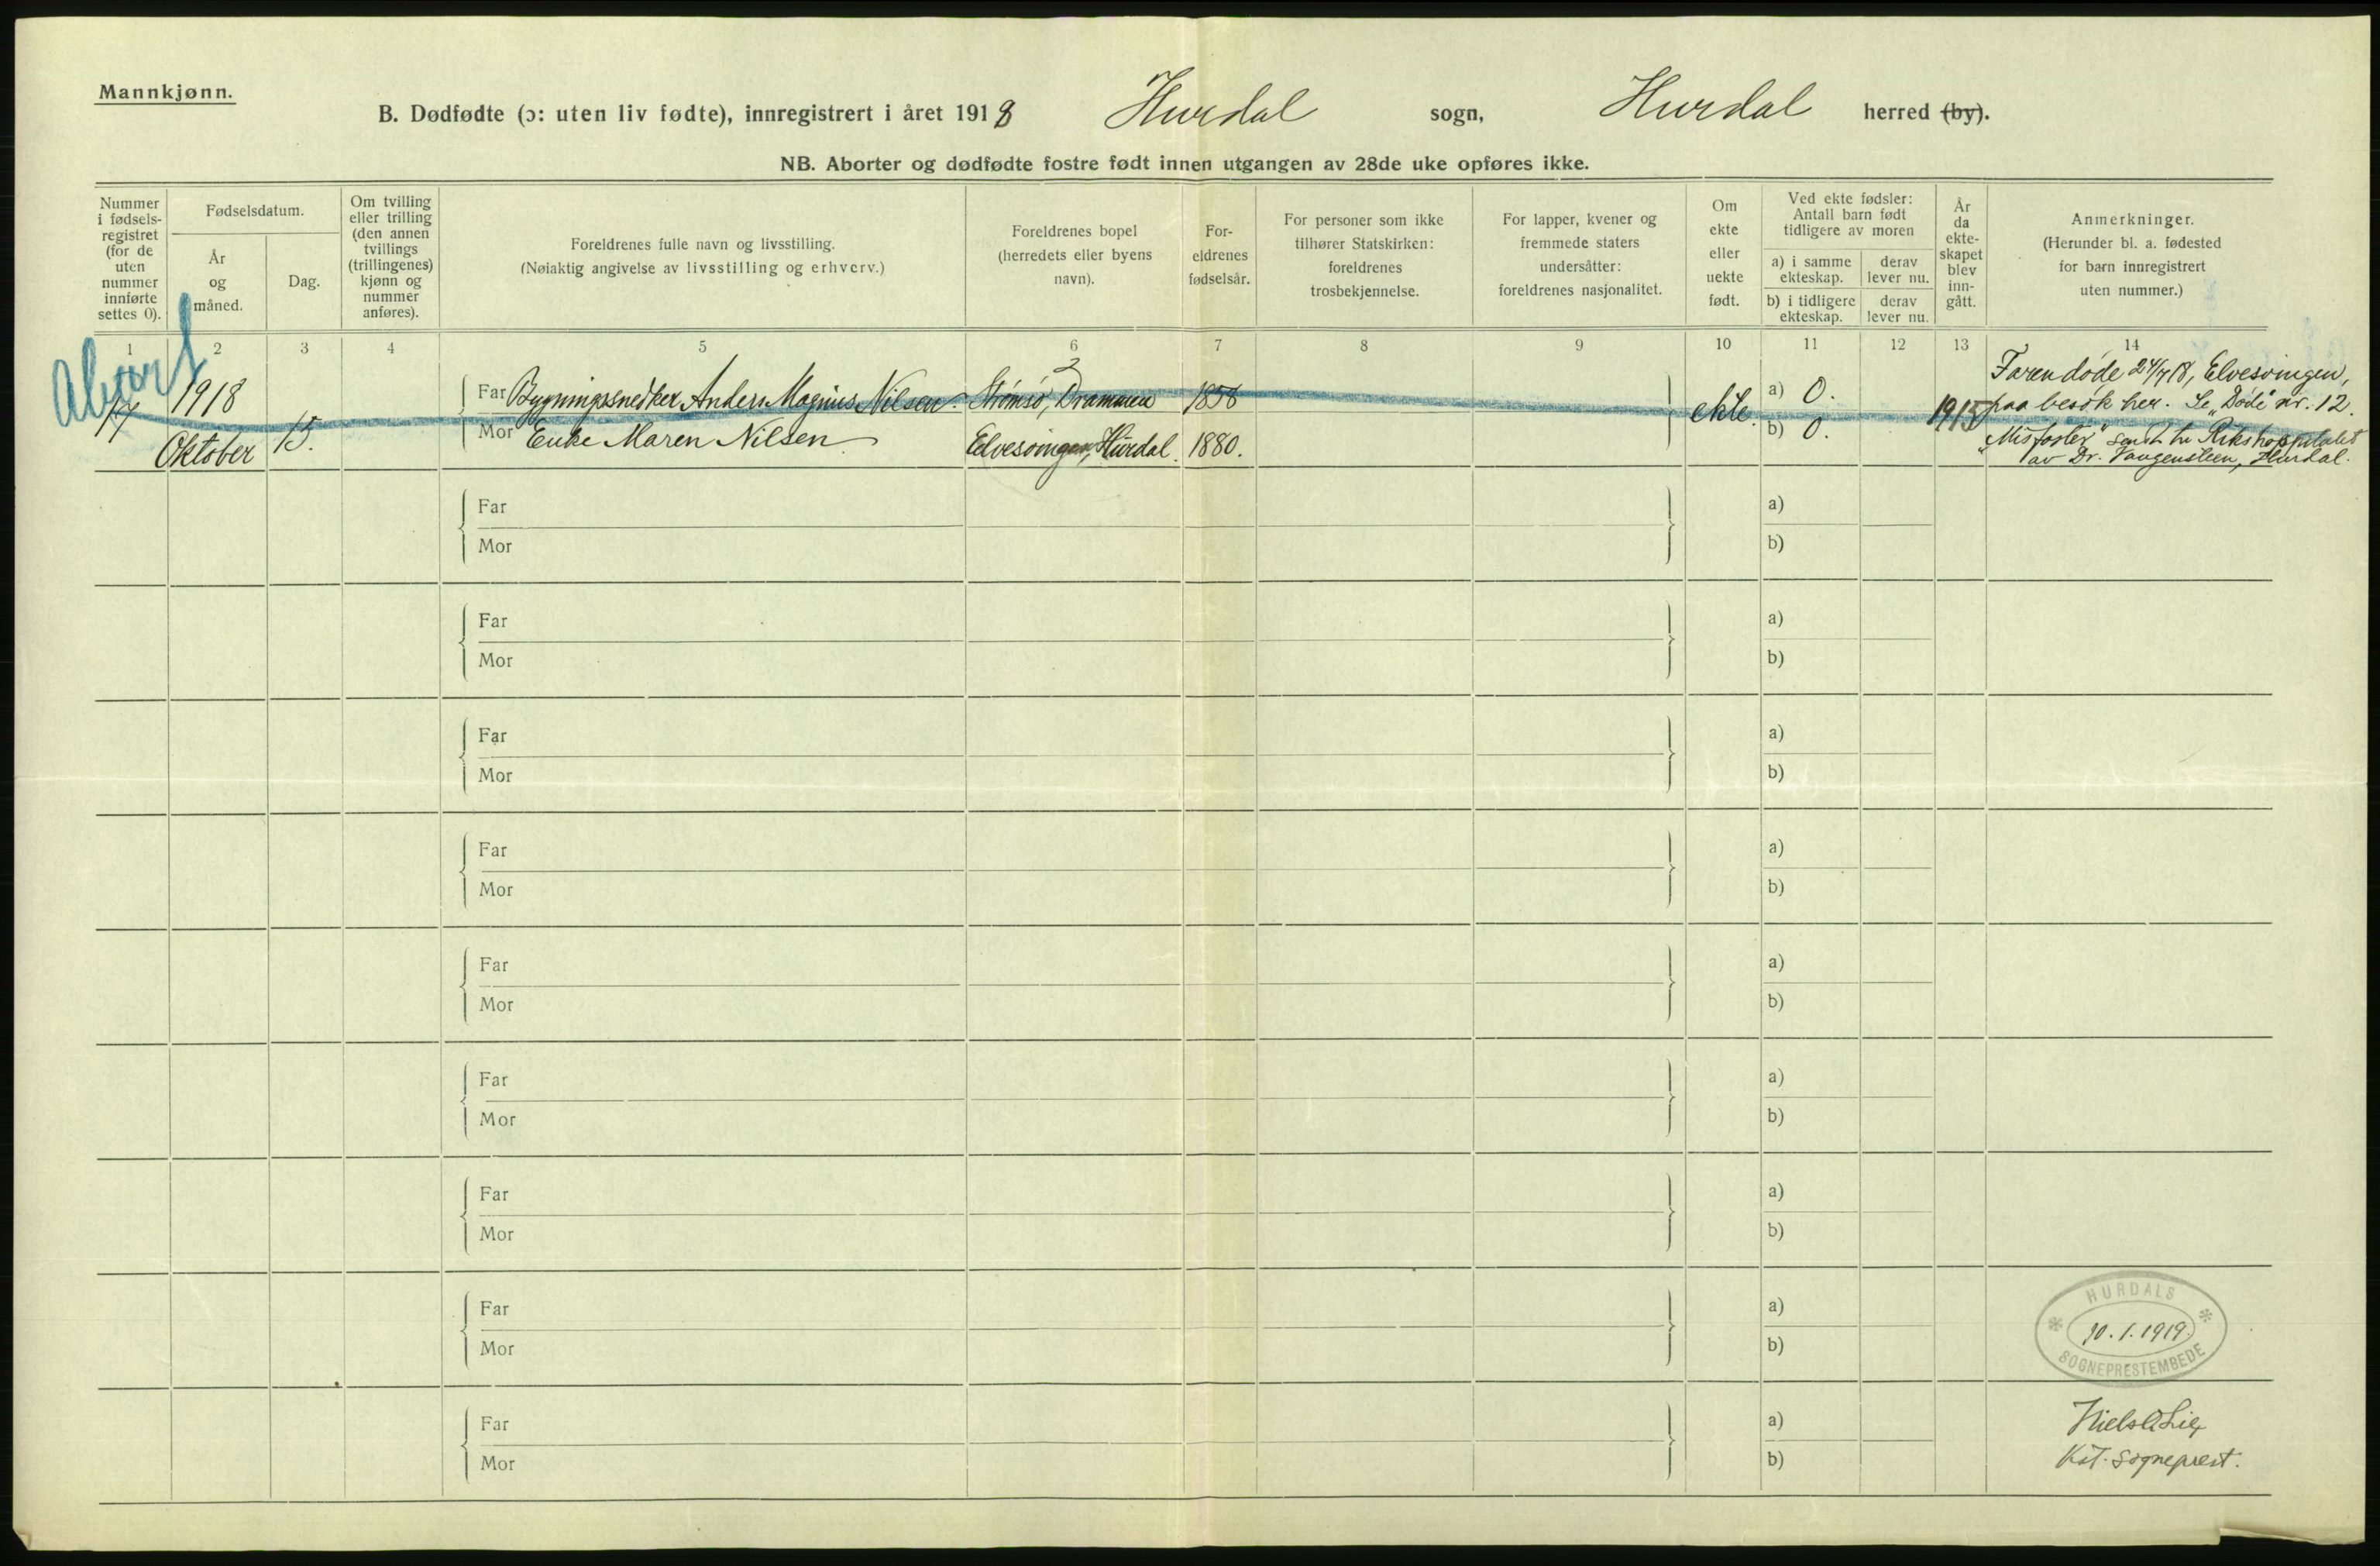 Mannkjønn.
B. Dødfødte (ɔ: uten liv fødte), innregistrert i året 1918 Hurdal sogn, Hurdal herred (by).
NB. Aborter og dødfødte fostre født innen utgangen av 28de uke opføres ikke.
Nummer
i fødsels-
registret
(for de
uten
nummer
innførte
settes 0).
Fødselsdatum.
År
og
måned.
Dag.
Om tvilling
eller trilling
(den annen
tvillings
(trillingenes)
kjønn og
nummer
anføres).
Foreldrenes fulle navn og livsstilling.
(Nøiaktig angivelse av livsstilling og erhverv.)
Foreldrenes bopel
(herredets eller byens
navn).
For-
eldrenes
fødselsår.
For personer som ikke
tilhører Statskirken:
foreldrenes
trosbekjennelse.
For lapper, kvener og
fremmede staters
undersåtter:
foreldrenes nasjonalitet.
Om
ekte
eller
uekte
født.
Ved ekte fødsler:
Antall barn født
tidligere av moren
a) i samme
ekteskap.
derav
lever nu.
b) i tidligere
ekteskap.
derav
lever nu.
År
da
ekte-
skapet
blev
inn-
gått.
Anmerkninger.
(Herunder bl. a. fødested
for barn innregistrert
uten nummer.)
1 2 3 4 5 6 7 8 9 10 11 12 13 14
Abort
17
1918
Oktober
15.
Far Bygningssnedker Anders Magnus Nilsen. Strømsø, Drammen 1858
Mor Enke Maren Nilsen. Elvesvingen, Hurdal. 1880.
ekte.
a) 0.
b) 0.
1915
Faren døde 24/7 18, Elvesvingen,
paa besøk her. Se „Døde" nr. 12.
„Misfoster" sendt Rikshospitalet
av Dr. Vangensteen, Hurdal.
Far a)
Mor b)
Far a)
Mor b)
Far a)
Mor b)
Far a)
Mor b)
Far a)
Mor b)
Far a)
Mor b)
Far a)
Mor b)
Far a)
Mor b)
Far a)
Mor b)
HURDALS
10.1.1919.
SOGNEPRESTEMBEDE
Niels Lie
Kst. sogneprest.